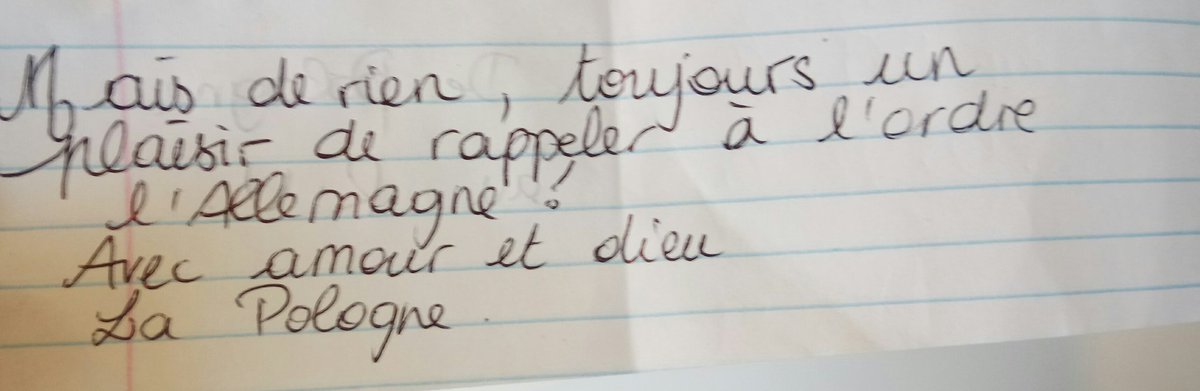 Mais de rien, toujours un
plaisir de rappeler à l'ordre
l'Allemagne !
Avec amour et dieu
La Pologne.